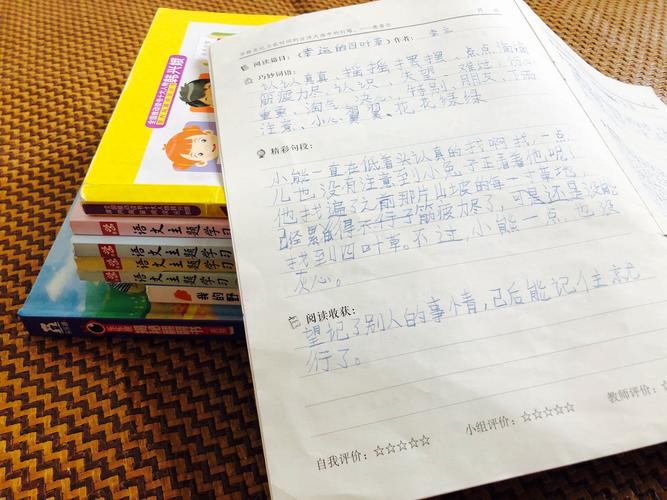 阅读篇目:《幸运的四叶草》作者:
巧妙词语:
认认真真、摇摇摆摆、点点滴滴
筋疲力尽、认识、失望、难过、
重要、淘气、特别、朋友、
注意、小心翼翼、花花绿绿
精彩句段:
小熊一直在低着头认真的找啊找,一点
儿也没有注意到小兔子正看着他呢!
他找遍了之前那片山坡的每一寸草地,
已经累的得不行了筋疲力尽了,可是还是没能
找到四叶草。不过,小熊一点,也没
灰心。
阅读收获:
望记了别人的事情,已后能记住就
行了。
自我评价:☆☆☆☆☆
小组评价:☆☆☆☆☆
教师评价:☆
韩兴娥
语文主题学习
语文主题学习
语文主题学习
我的野